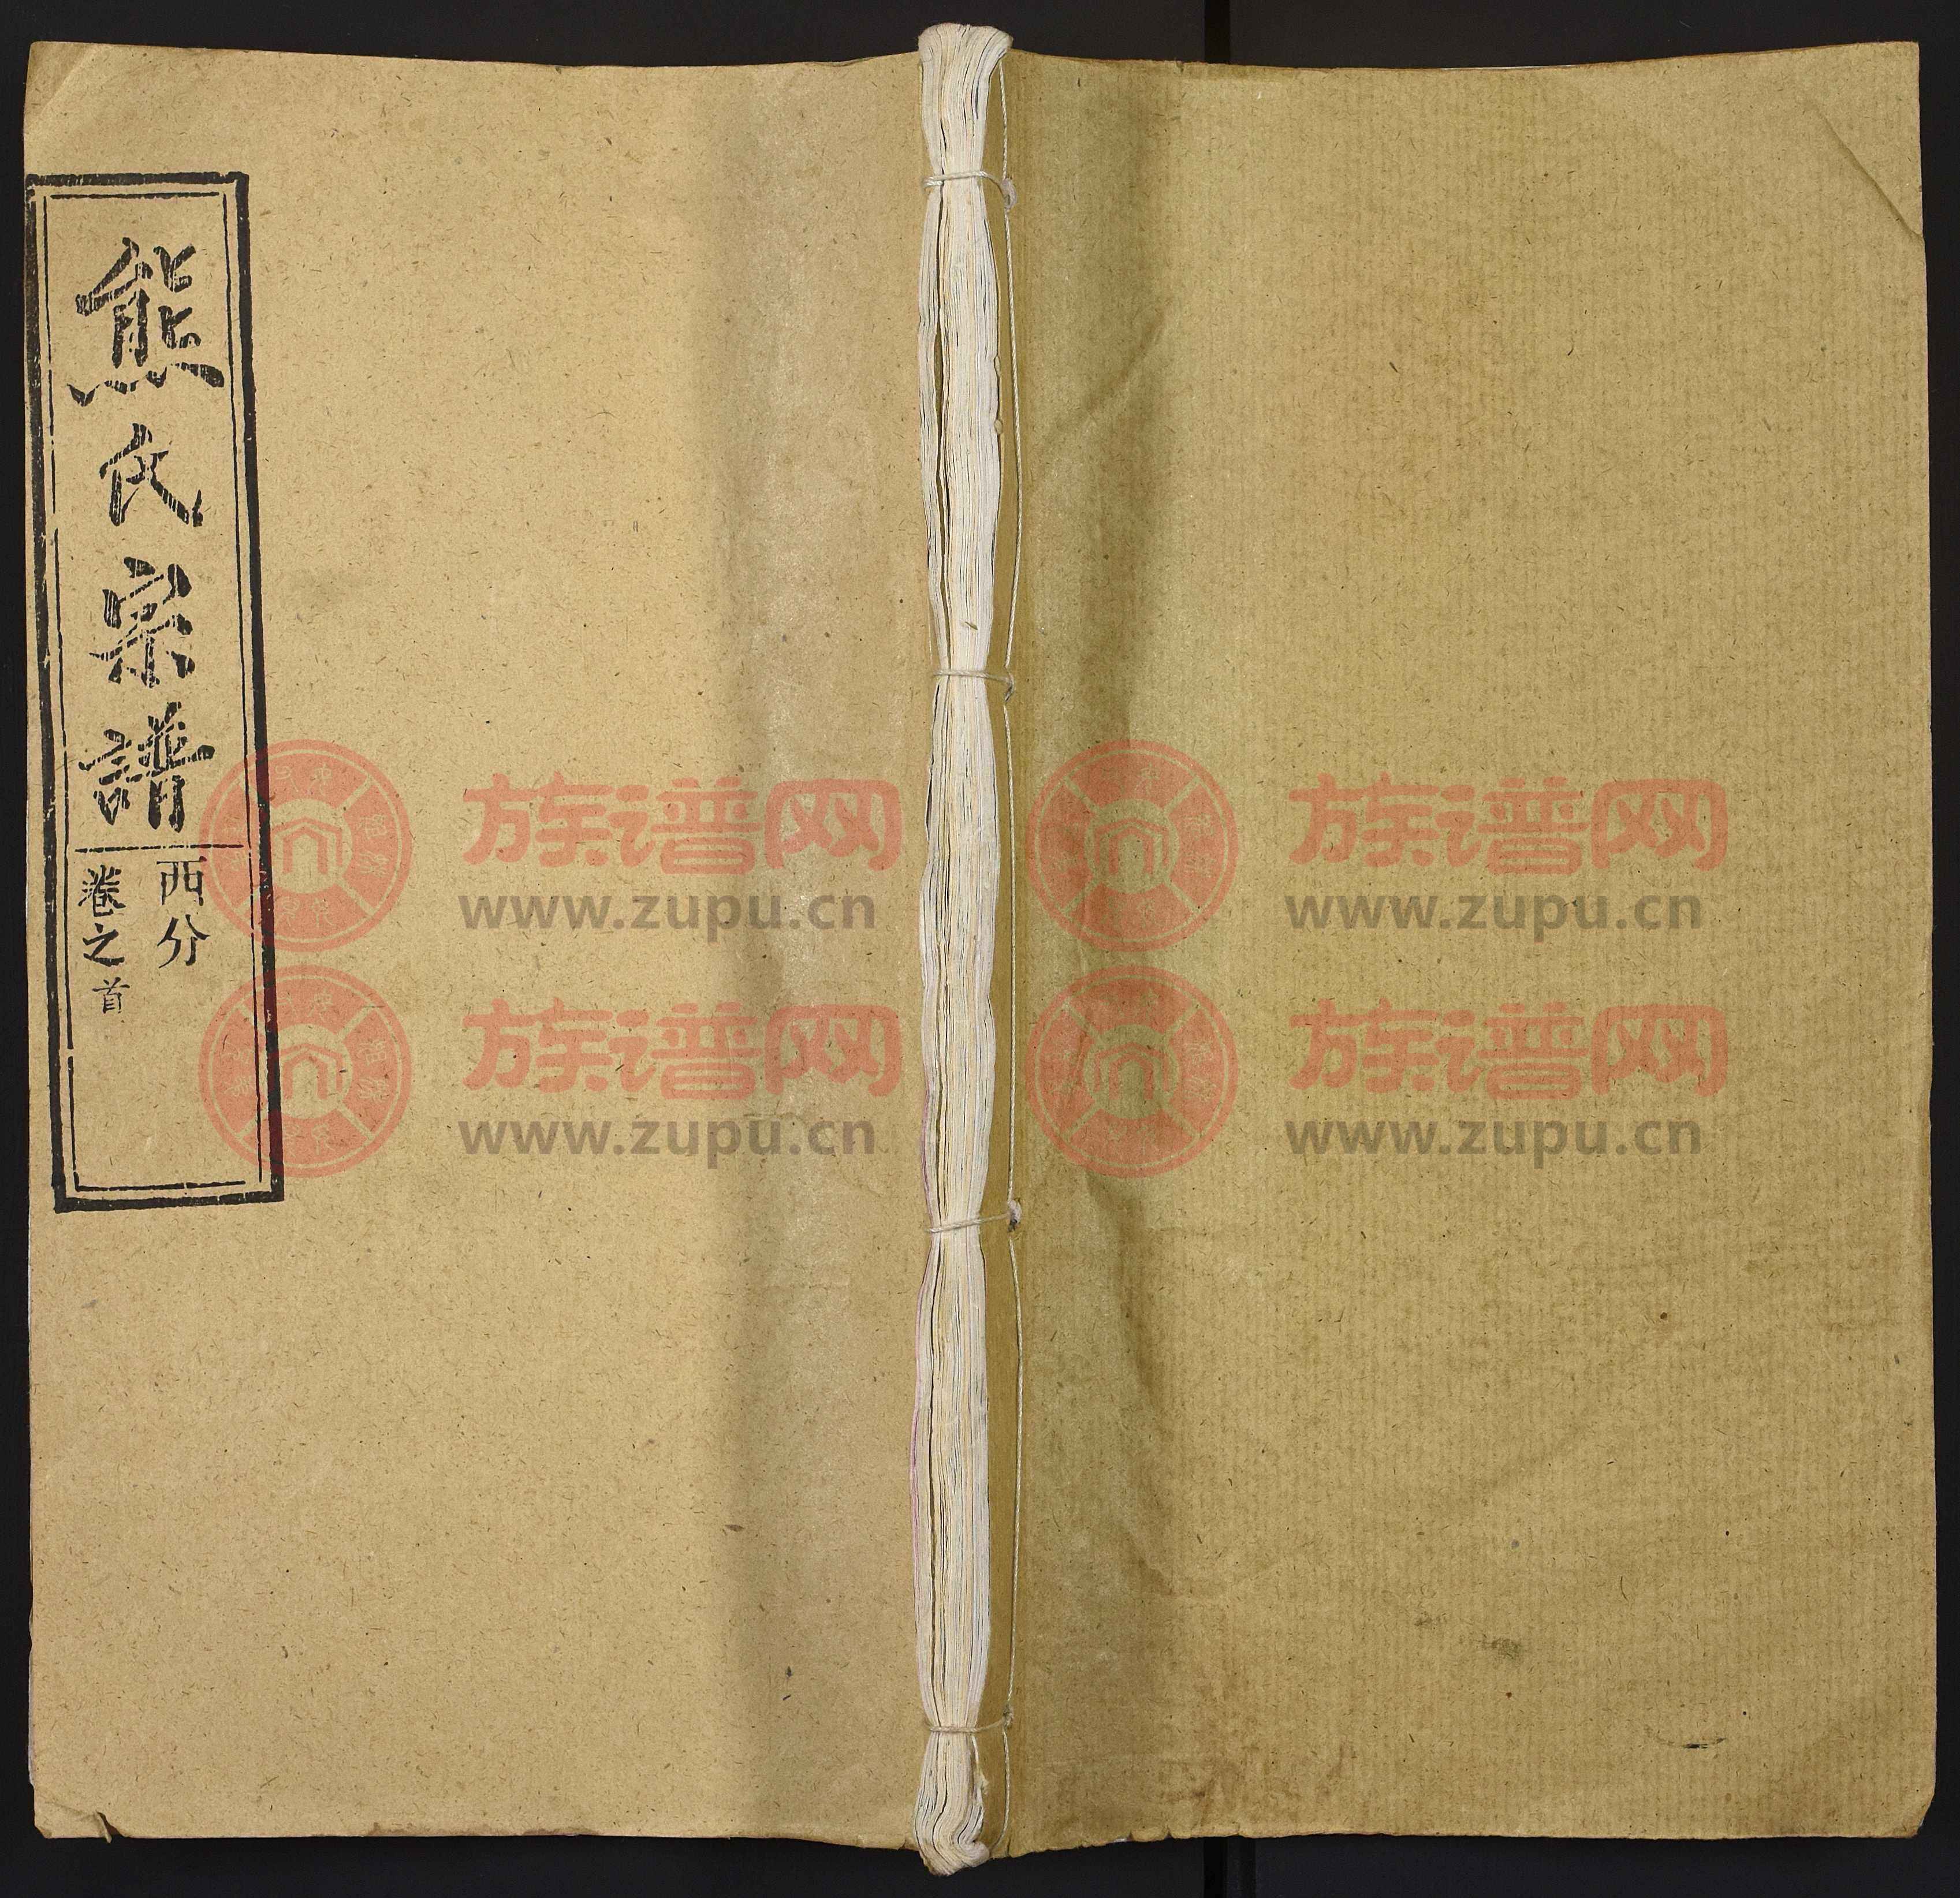 熊氏宗譜
西分
卷之首
族谱网
www.zupu.cn
族谱网
www.zupu.cn
族谱网
www.zupu.cn
族谱网
www.zupu.cn